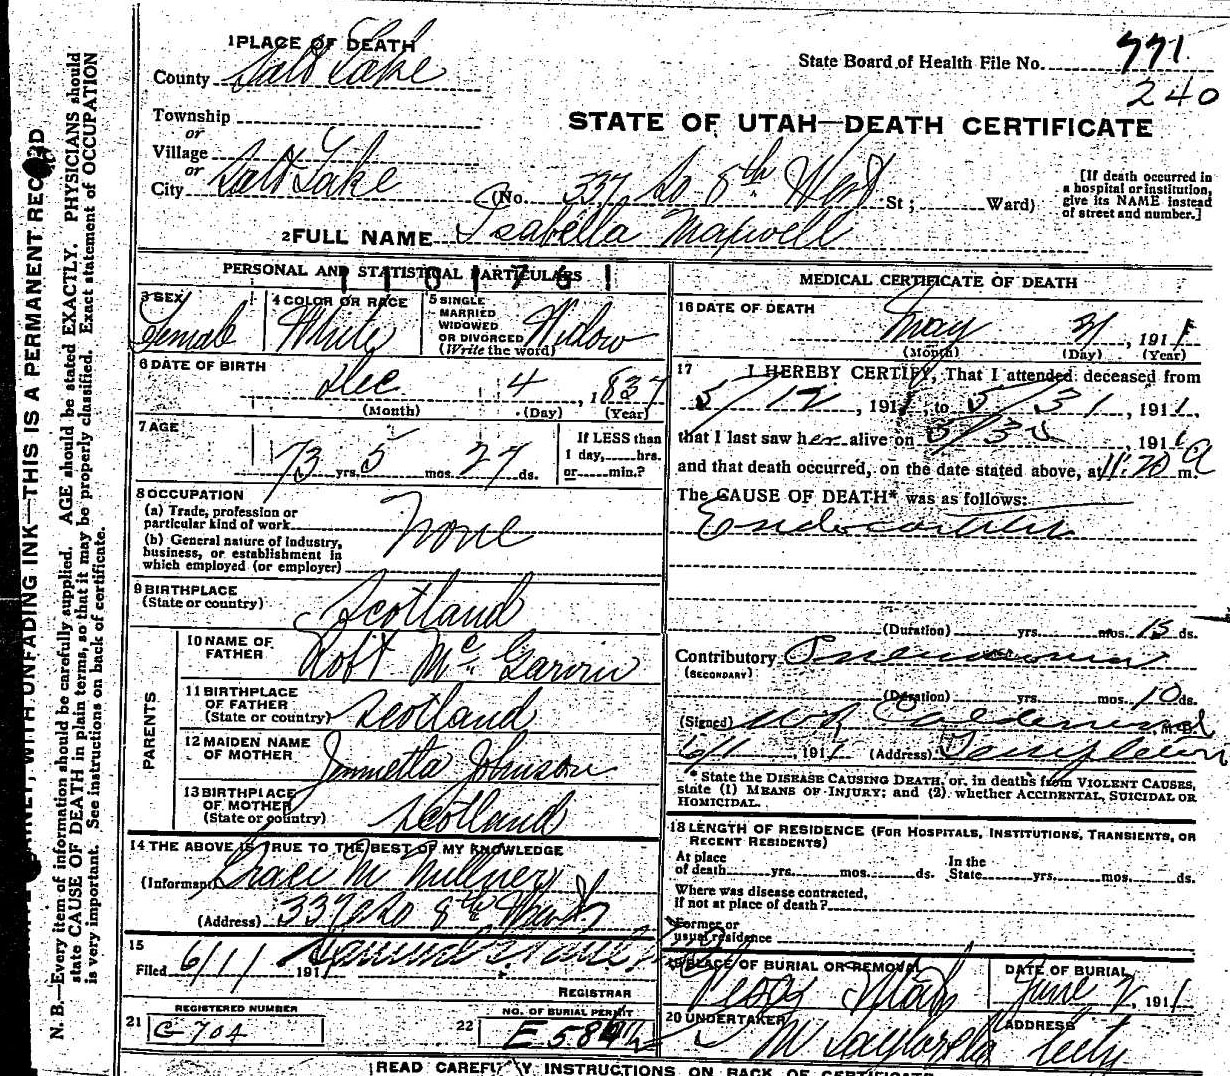 1 PLACE OF DEATH
County Salt Lake
State Board of Health File No. 771
240
Township
or
Village
or
City Salt Lake
STATE OF UTAH—DEATH CERTIFICATE
(No. 337 So 8th West St; Ward)
[If death occurred in
a hospital or institution,
give its NAME instead
of street and number.]
2 FULL NAME Isabella Maxwell
PERSONAL AND STATISTICAL PARTICULARS
3 SEX
Female
4 COLOR OR RACE
White
5 SINGLE
MARRIED
WIDOWED
OR DIVORCED
(Write the word)
Widow
6 DATE OF BIRTH
Dec 4, 1837
(Month) (Day) (Year)
7 AGE
73 yrs. 5 mos. 27 ds.
If LESS than
1 day, hrs.
or min.?
8 OCCUPATION
(a) Trade, profession or
particular kind of work
None
(b) General nature of industry,
business, or establishment in
which employed (or employer)
9 BIRTHPLACE
(State or country)
Scotland
PARENTS
10 NAME OF
FATHER
Robt Mc Garvin
11 BIRTHPLACE
OF FATHER
(State or country)
Scotland
12 MAIDEN NAME
OF MOTHER
Johnson
13 BIRTHPLACE
OF MOTHER
(State or country)
Scotland
14 THE ABOVE IS TRUE TO THE BEST OF MY KNOWLEDGE
(Informant) Grace M
(Address) 337 So 8th West
15
Filed 6/1 1911
REGISTRAR
REGISTERED NUMBER
21 C-704
NO. OF BURIAL PERMIT
22 E
MEDICAL CERTIFICATE OF DEATH
16 DATE OF DEATH
May 31, 1911
(Month) (Day) (Year)
17 I HEREBY CERTIFY, That I attended deceased from
5/12, 1911, to 5/31, 1911,
that I last saw her alive on 5/30, 1911
and that death occurred, on the date stated above, at 11:20 a m.
The CAUSE OF DEATH* was as follows:
Endocarditis
(Duration) yrs. mos. 15 ds.
Contributory Pneumonia
(SECONDARY)
(Duration) yrs. mos. 10 ds.
(Signed) Calderwood, M.D.
6/1, 1911 (Address) Templeton
*State the DISEASE CAUSING DEATH, or, in deaths from VIOLENT CAUSES,
state (1) MEANS OF INJURY; and (2) whether ACCIDENTAL, SUICIDAL OR
HOMICIDAL.
18 LENGTH OF RESIDENCE (FOR HOSPITALS, INSTITUTIONS, TRANSIENTS, OR
RECENT RESIDENTS)
At place
of death yrs. mos. ds.
In the
State yrs. mos. ds.
Where was disease contracted,
if not at place of death?
Former or
usual residence
19 PLACE OF BURIAL OR REMOVAL
Peoa Utah
DATE OF BURIAL
June 2, 1911
20 UNDERTAKER
ADDRESS
City
READ CAREFULLY INSTRUCTIONS ON BACK OF CERTIFICATE
WITH UNFADING INK—THIS IS A PERMANENT RECORD
N. B.—Every item of information should be carefully supplied. AGE should be stated EXACTLY. PHYSICIANS should
state CAUSE OF DEATH in plain terms, so that it may be properly classified. Exact statement of OCCUPATION
is very important. See instructions on back of certificate.